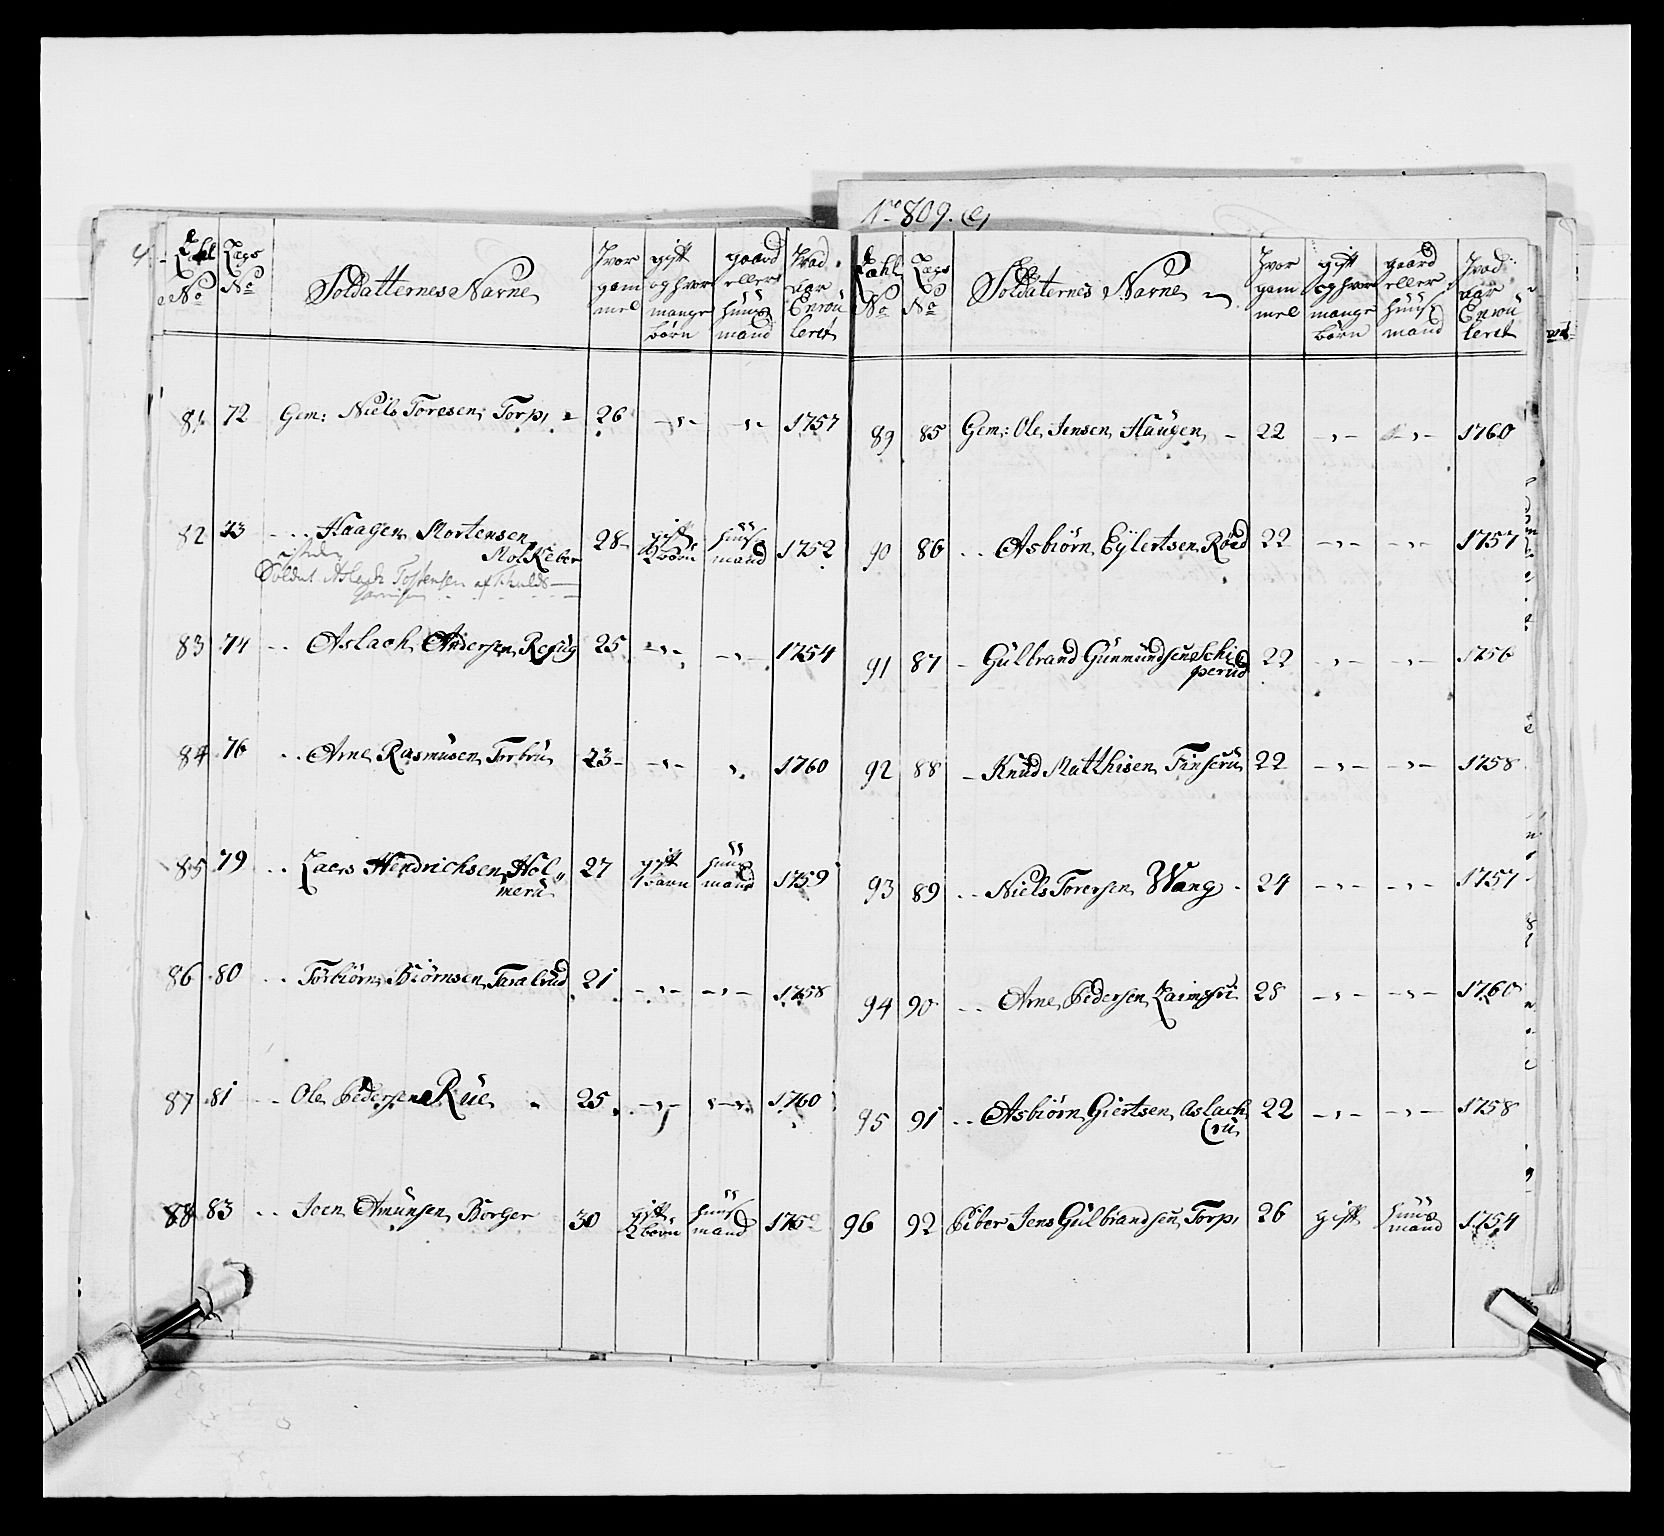 No 809. e,
Tahl No | Lægs No | Soldatternes Navne | Hvor gam mel | gift og hvor mange börn | gaard eller Huus mand | Hvad aar Enrou leret
81 | 72 | Gem: Niels Toresen, Torp, | 26 | -"- | -"- | 1757
82 | 73 | - - Haagen Mortensen | 28 | gift 2 börn | huus mand | 1752
Holkeber
Soldat Aslack Tostensen af
83 | 74 | - - Aslach Andersen Refsüg | 25 | -"- | -"- | 1754
84 | 76 | - - Arne Rasmusen Torbrü | 23 | -"- | " | 1760
85 | 79 | - - Laers Hendrichsen Hol„ | 27 | gift 1 barn | huus mand | 1759
merü
86 | 80 | - - Torbiörn Biörnsen Taralrud | 21 | -"- | -"- | 1758
87 | 81 | - - Ole Pedersen Rüe | 25 | -"- | -"- | 1760
88 | 83 | - - Joen Amünsen Borger | 30 | gift 2 börn | huus mand | 1752
Tahl No | Lægs No | Soldaternes Navne | Hvor gam mel | gift og hvor mange börn | gaard eller huus mand | Hvad aar Enrou leret
89 | 85 | Gem: Ole Jensen Haugen | 22 | -"- | -"- | 1760
90 | 86 | - - Asbiörn Eylertsen Röed | 22 | -"- | -"- | 1757
91 | 87 | - Gülbrand Günmündsen Schi | 22 | -"- | -"- | 1756
perüd
92 | 88 | - Knüd Matthisen Finserü | 22 | -"- | -"- | 1758
93 | 89 | - - Niels Torersen Wang | 24 | -"- | -"- | 1757
94 | 90 | - - Arne Pedersen | 28 | -"- | -"- | 1760
95 | 91 | - - Asbiörn Giertsen Aslach | 22 | -"- | -"- | 1758
rü
96 | 92 | Piber Jens Gülbrandsen Torp | 26 | gift | huus mand | 1754